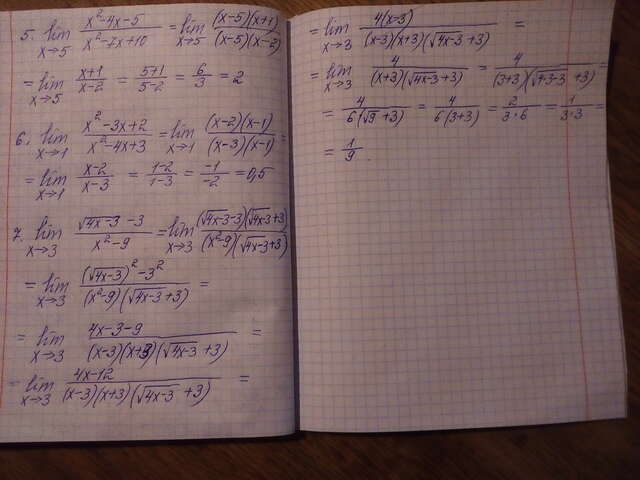 5. lim x→5 (x²-4x-5)/(x²-7x+10) = lim x→5 ((x-5)(x+1))/((x-5)(x-2))
= lim x→5 (x+1)/(x-2) = (5+1)/(5-2) = 6/3 = 2
6. lim x→1 (x²-3x+2)/(x²-4x+3) = lim x→1 ((x-2)(x-1))/((x-3)(x-1)) =
= lim x→1 (x-2)/(x-3) = (1-2)/(1-3) = (-1)/(-2) = 0,5
7. lim x→3 (√(4x-3) - 3)/(x²-9) = lim x→3 ((√(4x-3) - 3)(√(4x-3) + 3))/((x²-9)(√(4x-3) + 3))
= lim x→3 ((√(4x-3))² - 3²)/((x²-9)(√(4x-3) + 3)) =
= lim x→3 (4x-3-9)/((x-3)(x+3)(√(4x-3) + 3)) =
= lim x→3 (4x-12)/((x-3)(x+3)(√(4x-3) + 3)) =
= lim x→3 (4(x-3))/((x-3)(x+3)(√(4x-3) + 3)) =
= lim x→3 4/((x+3)(√(4x-3) + 3)) = 4/((3+3)(√(4·3-3) + 3)) =
= 4/(6(√9 + 3)) = 4/(6(3+3)) = 2/(3·6) = 1/(3·3) =
= 1/9.